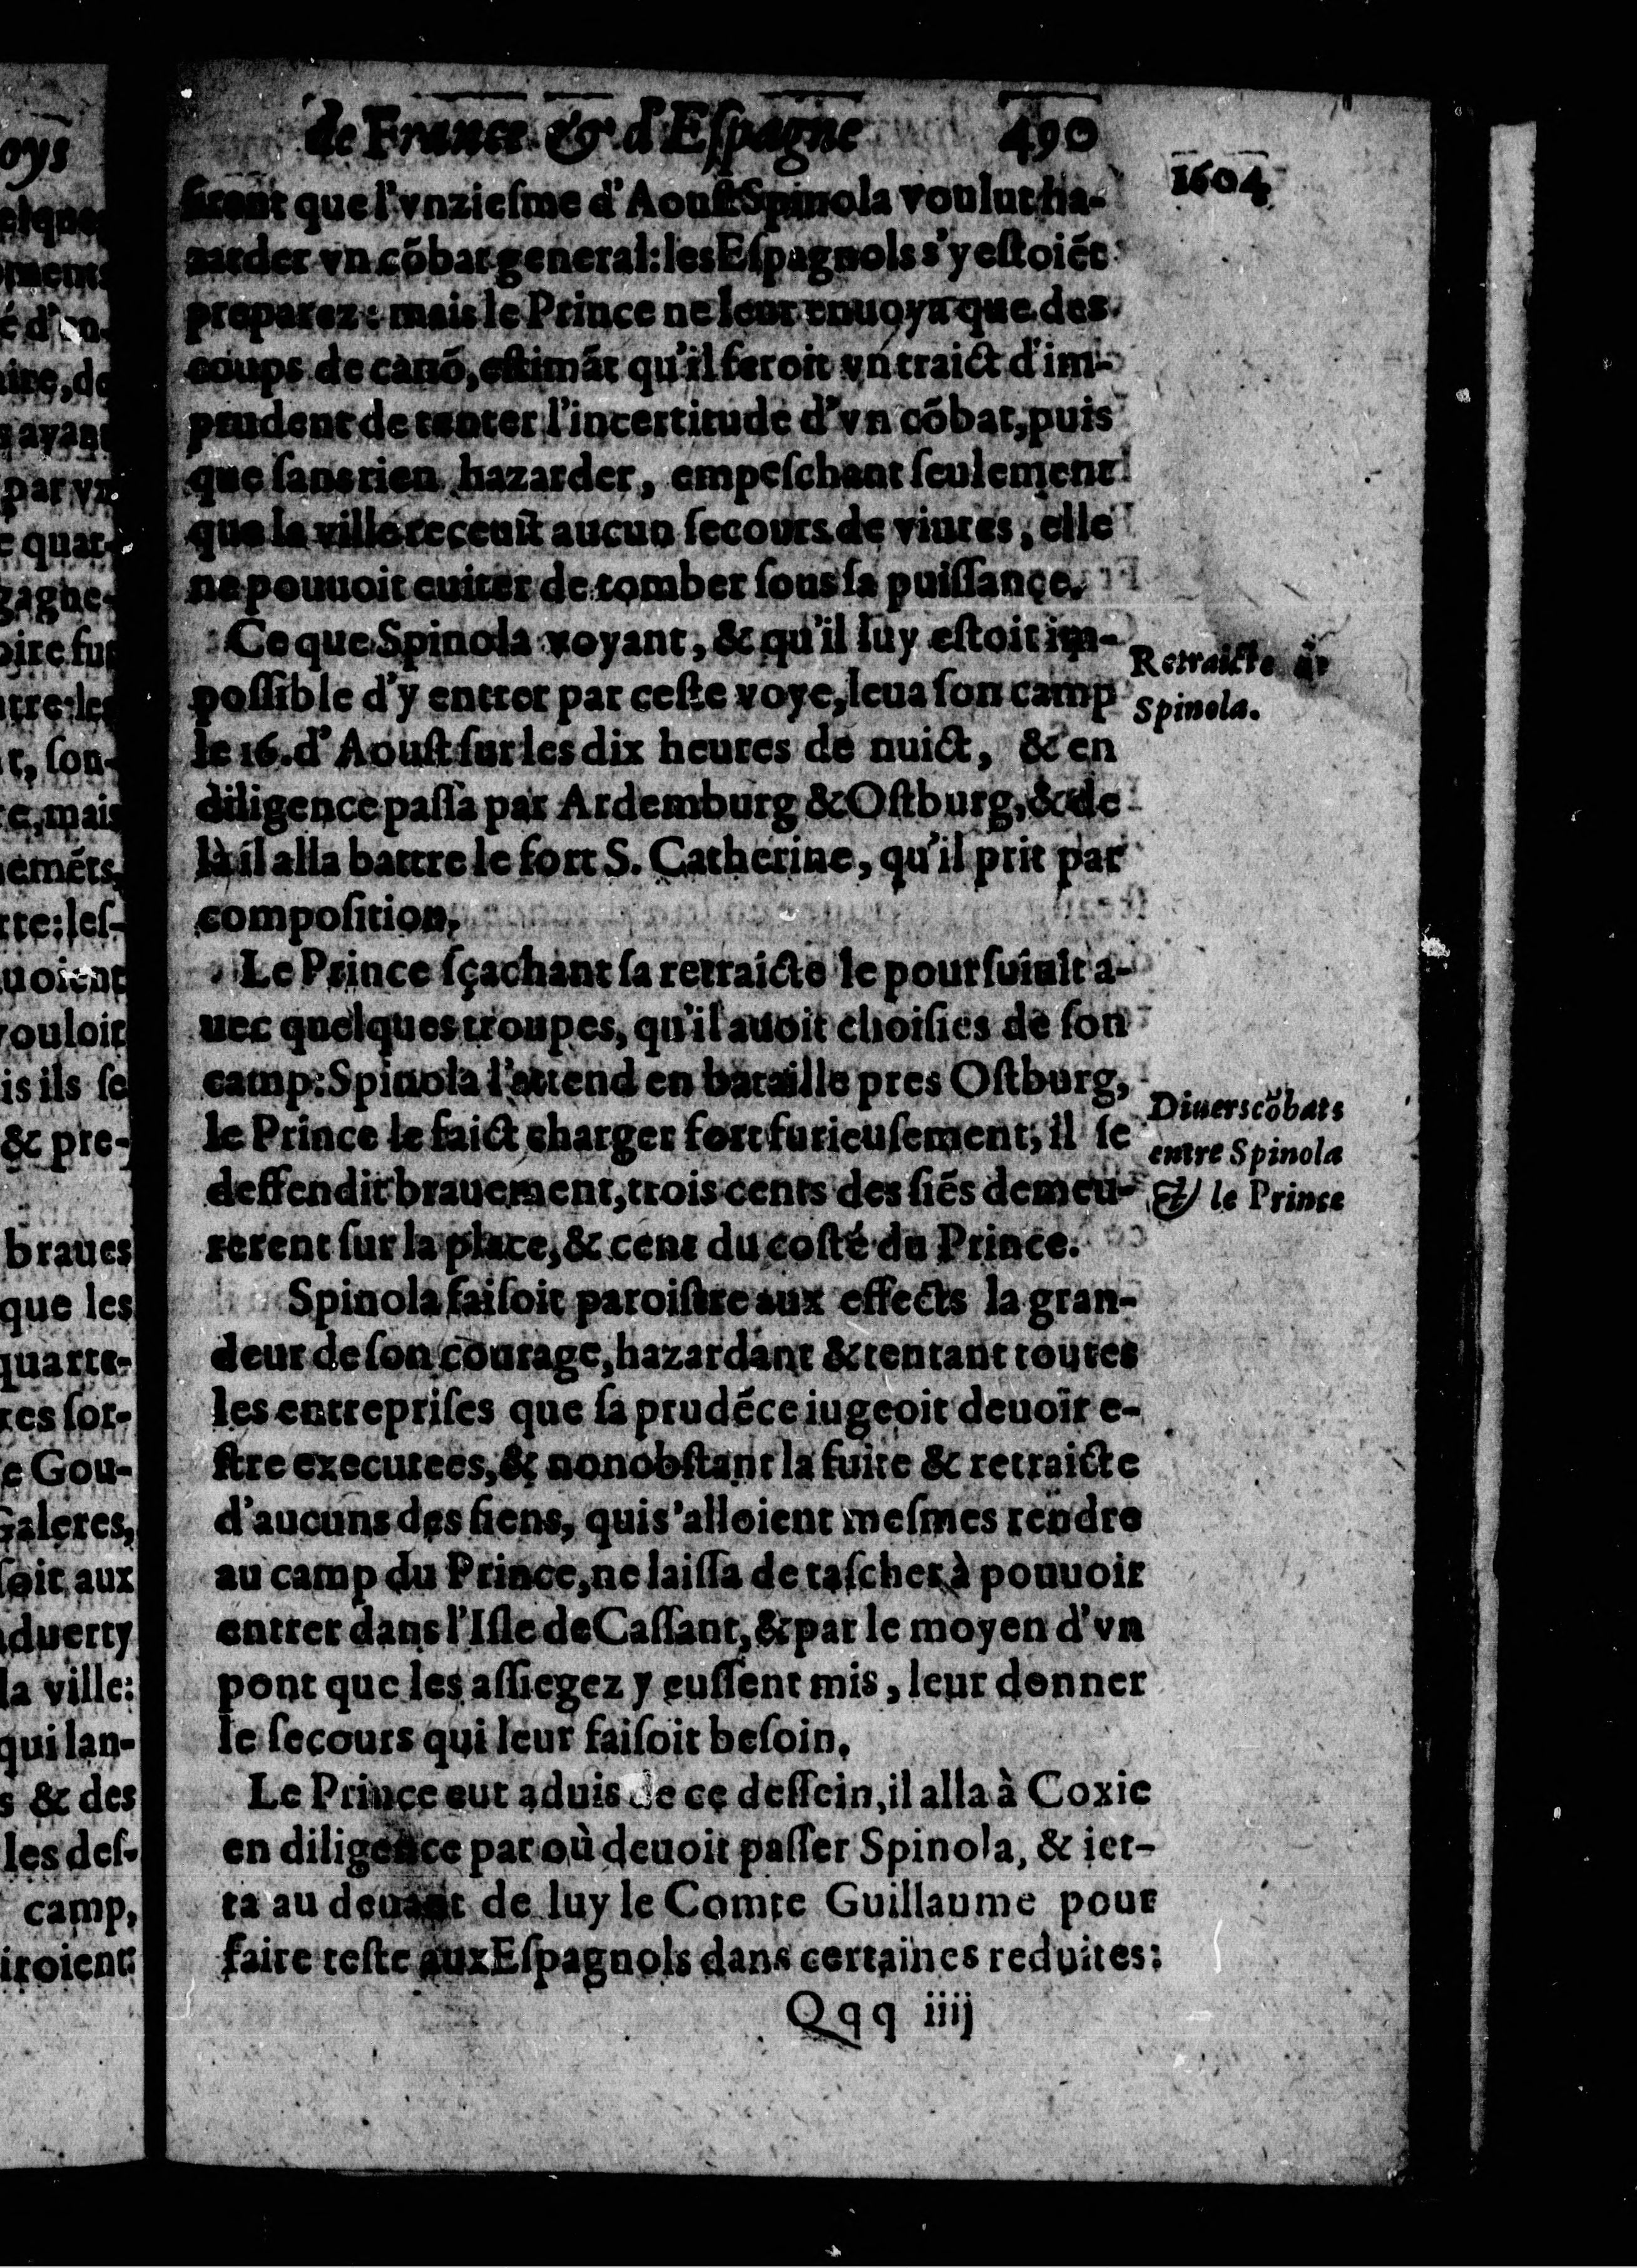 de France & d'Eſpagne 490
1604
firent que l'vnzieſme d'Aouſt Spinola voulut ha-
zarder vn cõbat general: les Eſpagnols s'y eſtoiẽt
preparez: mais le Prince ne leur enuoya que des
coups de canõ, eſtimãt qu'il feroit vn traict d'im-
prudent de tenter l'incertitude d'vn cõbat, puis
que ſans rien hazarder, empeſchant ſeulement
que la ville receuſt aucun ſecours de viures, elle
ne pouuoit euiter de tomber ſous ſa puiſſançe.
Ce que Spinola voyant, & qu'il luy eſtoit im-
poſſible d'y entrer par ceſte voye, leua ſon camp
le 16. d'Aouſt ſur les dix heures de nuict, & en
diligence paſſa par Ardemburg & Oſtburg, & de
là il alla battre le fort S. Catherine, qu'il prit par
compoſition.
Retraicte de
Spinola.
Le Prince ſçachant ſa retraicte le pourſuiuit a-
uec quelques troupes, qu'il auoit choiſies de ſon
camp: Spinola l'attend en bataille pres Oſtburg,
le Prince le faict charger fort furieuſement, il ſe
deffendit brauement, trois cents des ſiẽs demeu-
rerent ſur la place, & cent du coſté du Prince.
Diuers cõbats
entre Spinola
& le Prince
Spinola faiſoit paroiſtre aux effects la gran-
deur de ſon courage, hazardant & tentant toutes
les entrepriſes que ſa prudẽce iugeoit deuoir e-
ſtre executees, & nonobſtant la fuite & retraicte
d'aucuns des ſiens, qui s'alloient meſmes rendre
au camp du Prince, ne laiſſa de taſcher à pouuoir
entrer dans l'Iſle de Caſſant, & par le moyen d'vn
pont que les aſſiegez y euſſent mis, leur donner
le ſecours qui leur faiſoit beſoin.
Le Prince eut aduis de ce deſſein, il alla à Coxie
en diligence par où deuoit paſſer Spinola, & iet-
ta au deuant de luy le Comte Guillaume pour
faire teſte aux Eſpagnols dans certaines reduites:
Qqq iiij